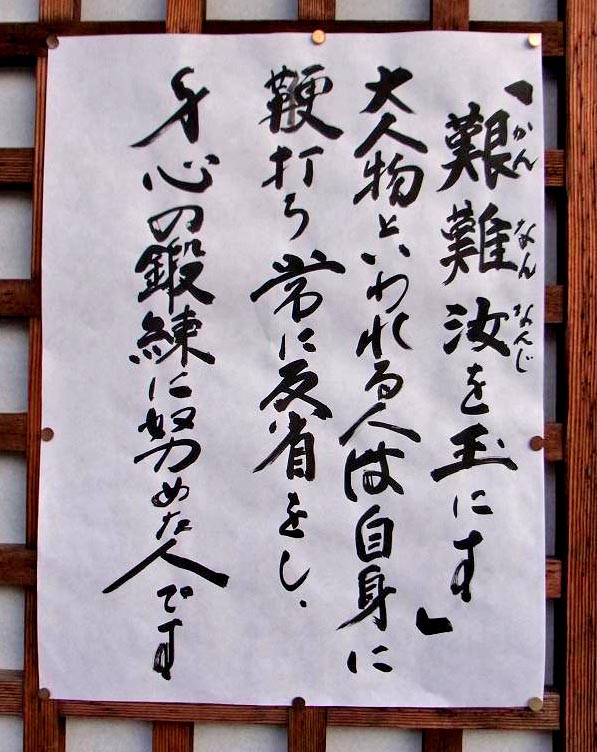 「艱難汝を玉にす」
かんなんなんじ
大人物といわれる人は自身に
鞭打ち常に反省をし、
身心の鍛練に努めた人です